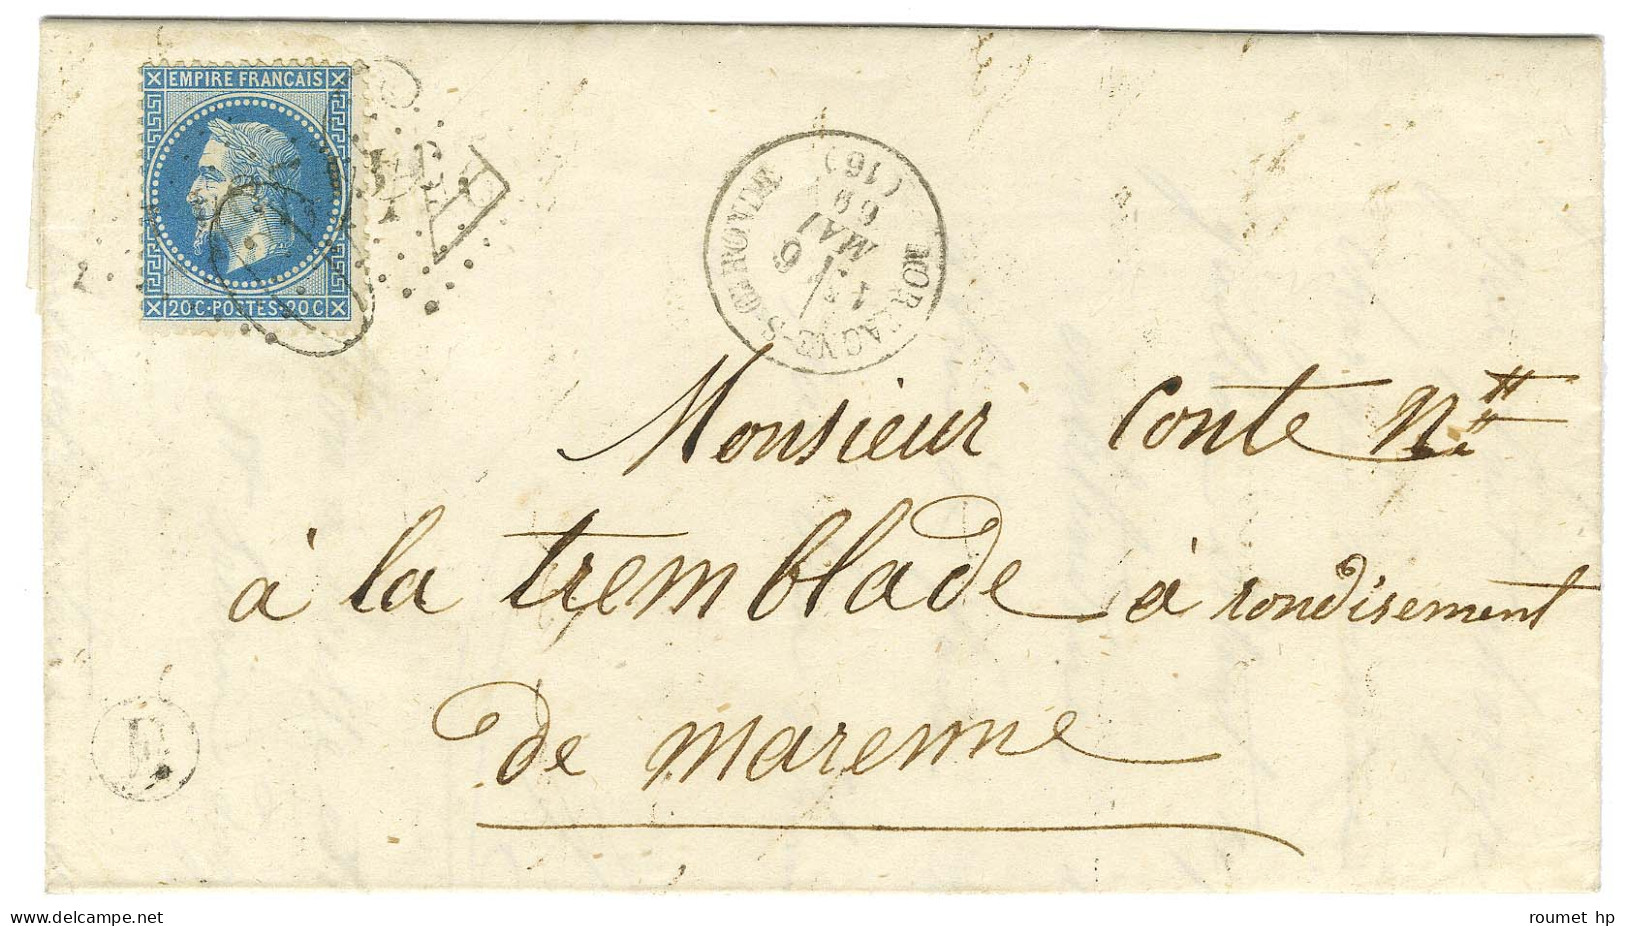 EMPIRE FRANCAIS
20 C · POSTES · 20 C
MORTAGNE-S-GIRONDE
6
MAI
69
(16)
Monsieur Conte N.
à la tremblade à rondisement
de marenne
delcampe.net
roumet hp